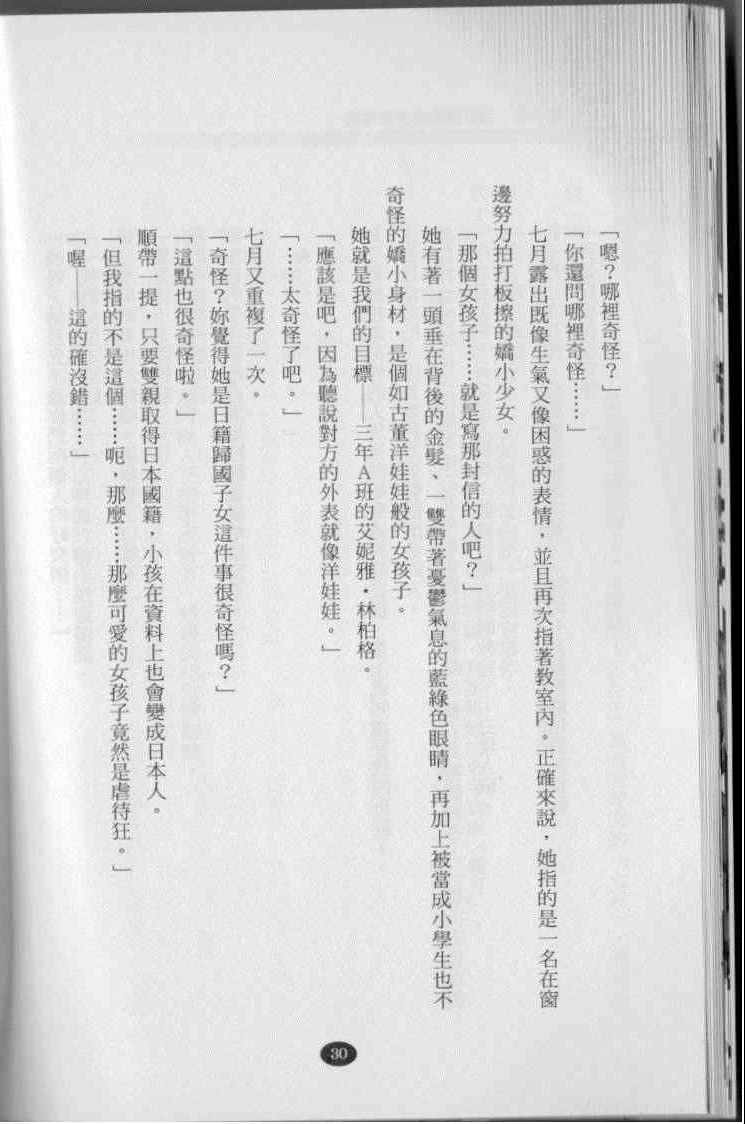 「嗯？哪裡奇怪？」
「你還問哪裡奇怪……」
七月露出既像生氣又像困惑的表情，並且再次指著教室內。正確來說，她指的是一名在窗
邊努力拍打板擦的嬌小少女。
「那個女孩子……就是寫那封信的人吧？」
她有著一頭垂在背後的金髮、一雙帶著憂鬱氣息的藍綠色眼睛，再加上被當成小學生也不
奇怪的嬌小身材，是個如古董洋娃娃般的女孩子。
她就是我們的目標——三年A班的艾妮雅・林柏格。
「應該是吧，因為聽說對方的外表就像洋娃娃。」
「……太奇怪了吧。」
七月又重複了一次。
「奇怪？妳覺得她是日籍歸國子女這件事很奇怪嗎？」
「這點也很奇怪啦。」
順帶一提，只要雙親取得日本國籍，小孩在資料上也會變成日本人。
「但我指的不是這個……呃，那麼……那麼可愛的女孩子竟然是虐待狂。」
「喔——這的確沒錯……」
30